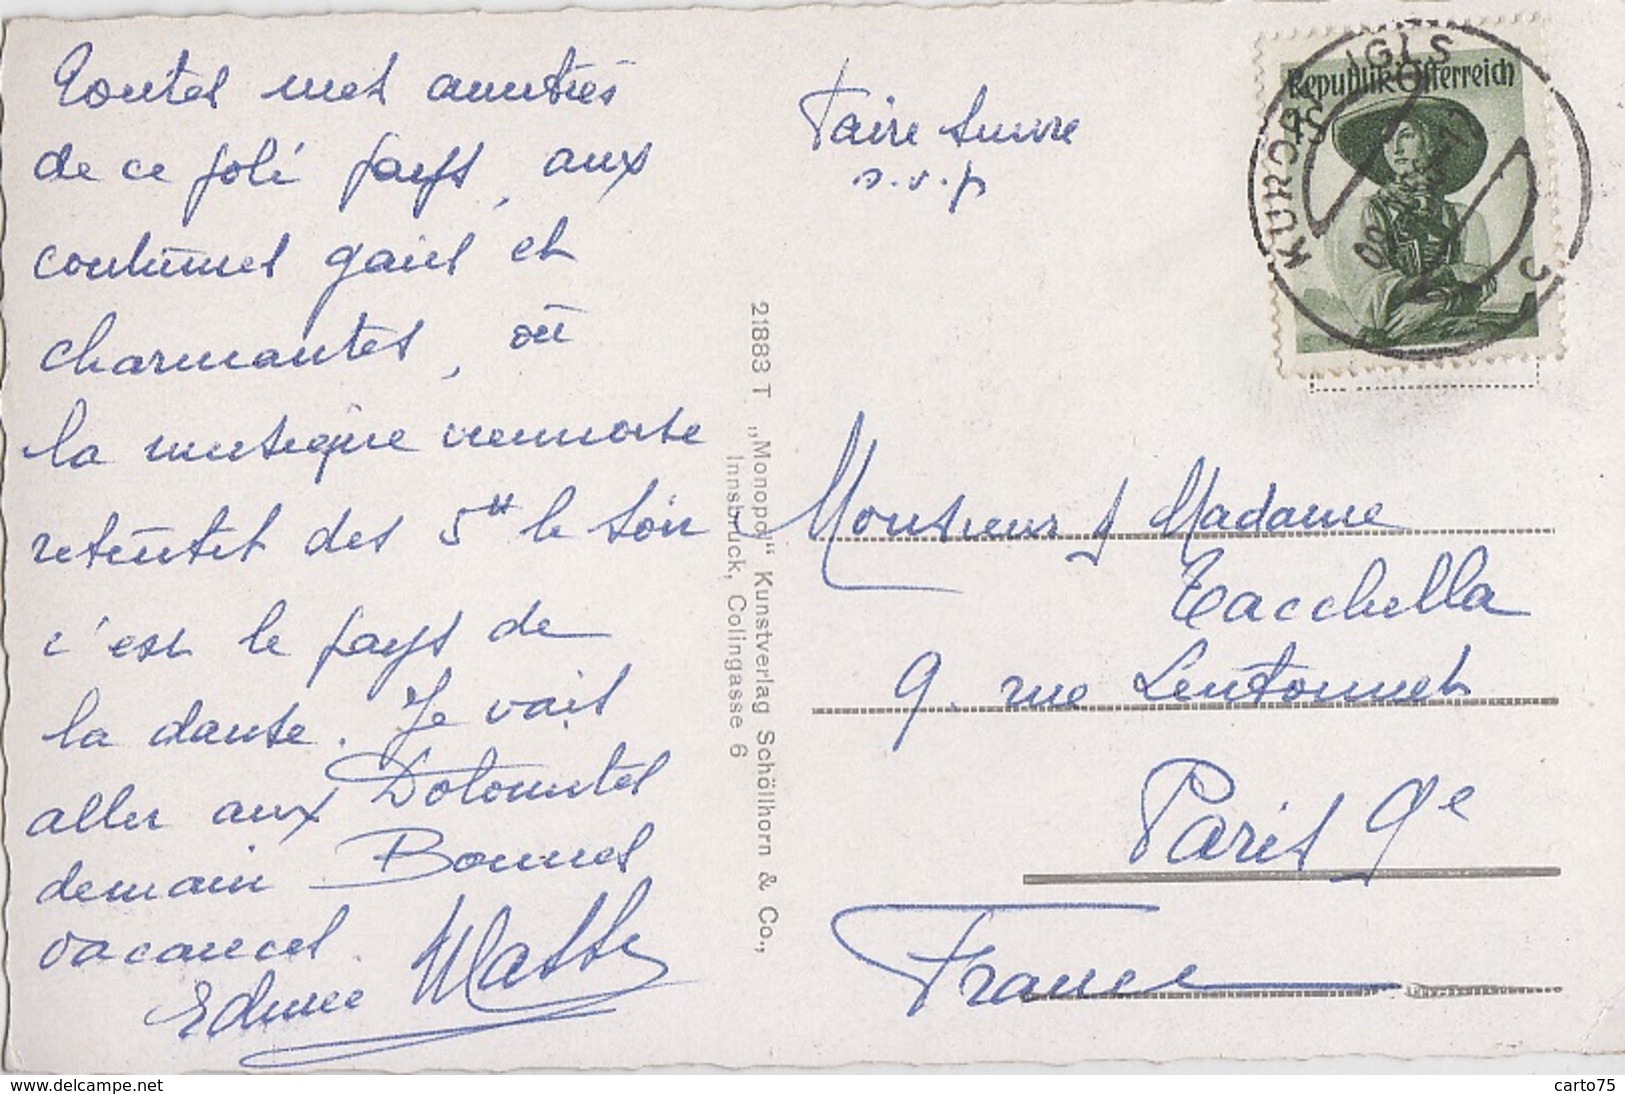 Toutes mes amitiés
de ce joli pays, aux
coutumes gaies et
charmantes, où
la musique viennoise
retentit dès 5H le soir
c'est le pays de
la danse. Je vais
aller aux Dolomites
demain Bonnes
vacances.
Edmée Masse
Faire suivre
s.v.p
Republik Österreich
KURORT IGLS
21883 T „Monopol“ Kunstverlag Schöllhorn & Co.,
Innsbruck, Colingasse 6
Monsieur & Madame
Tacchella
9. rue Lentonnet
Paris 9e
France
www.delcampe.net
carto75